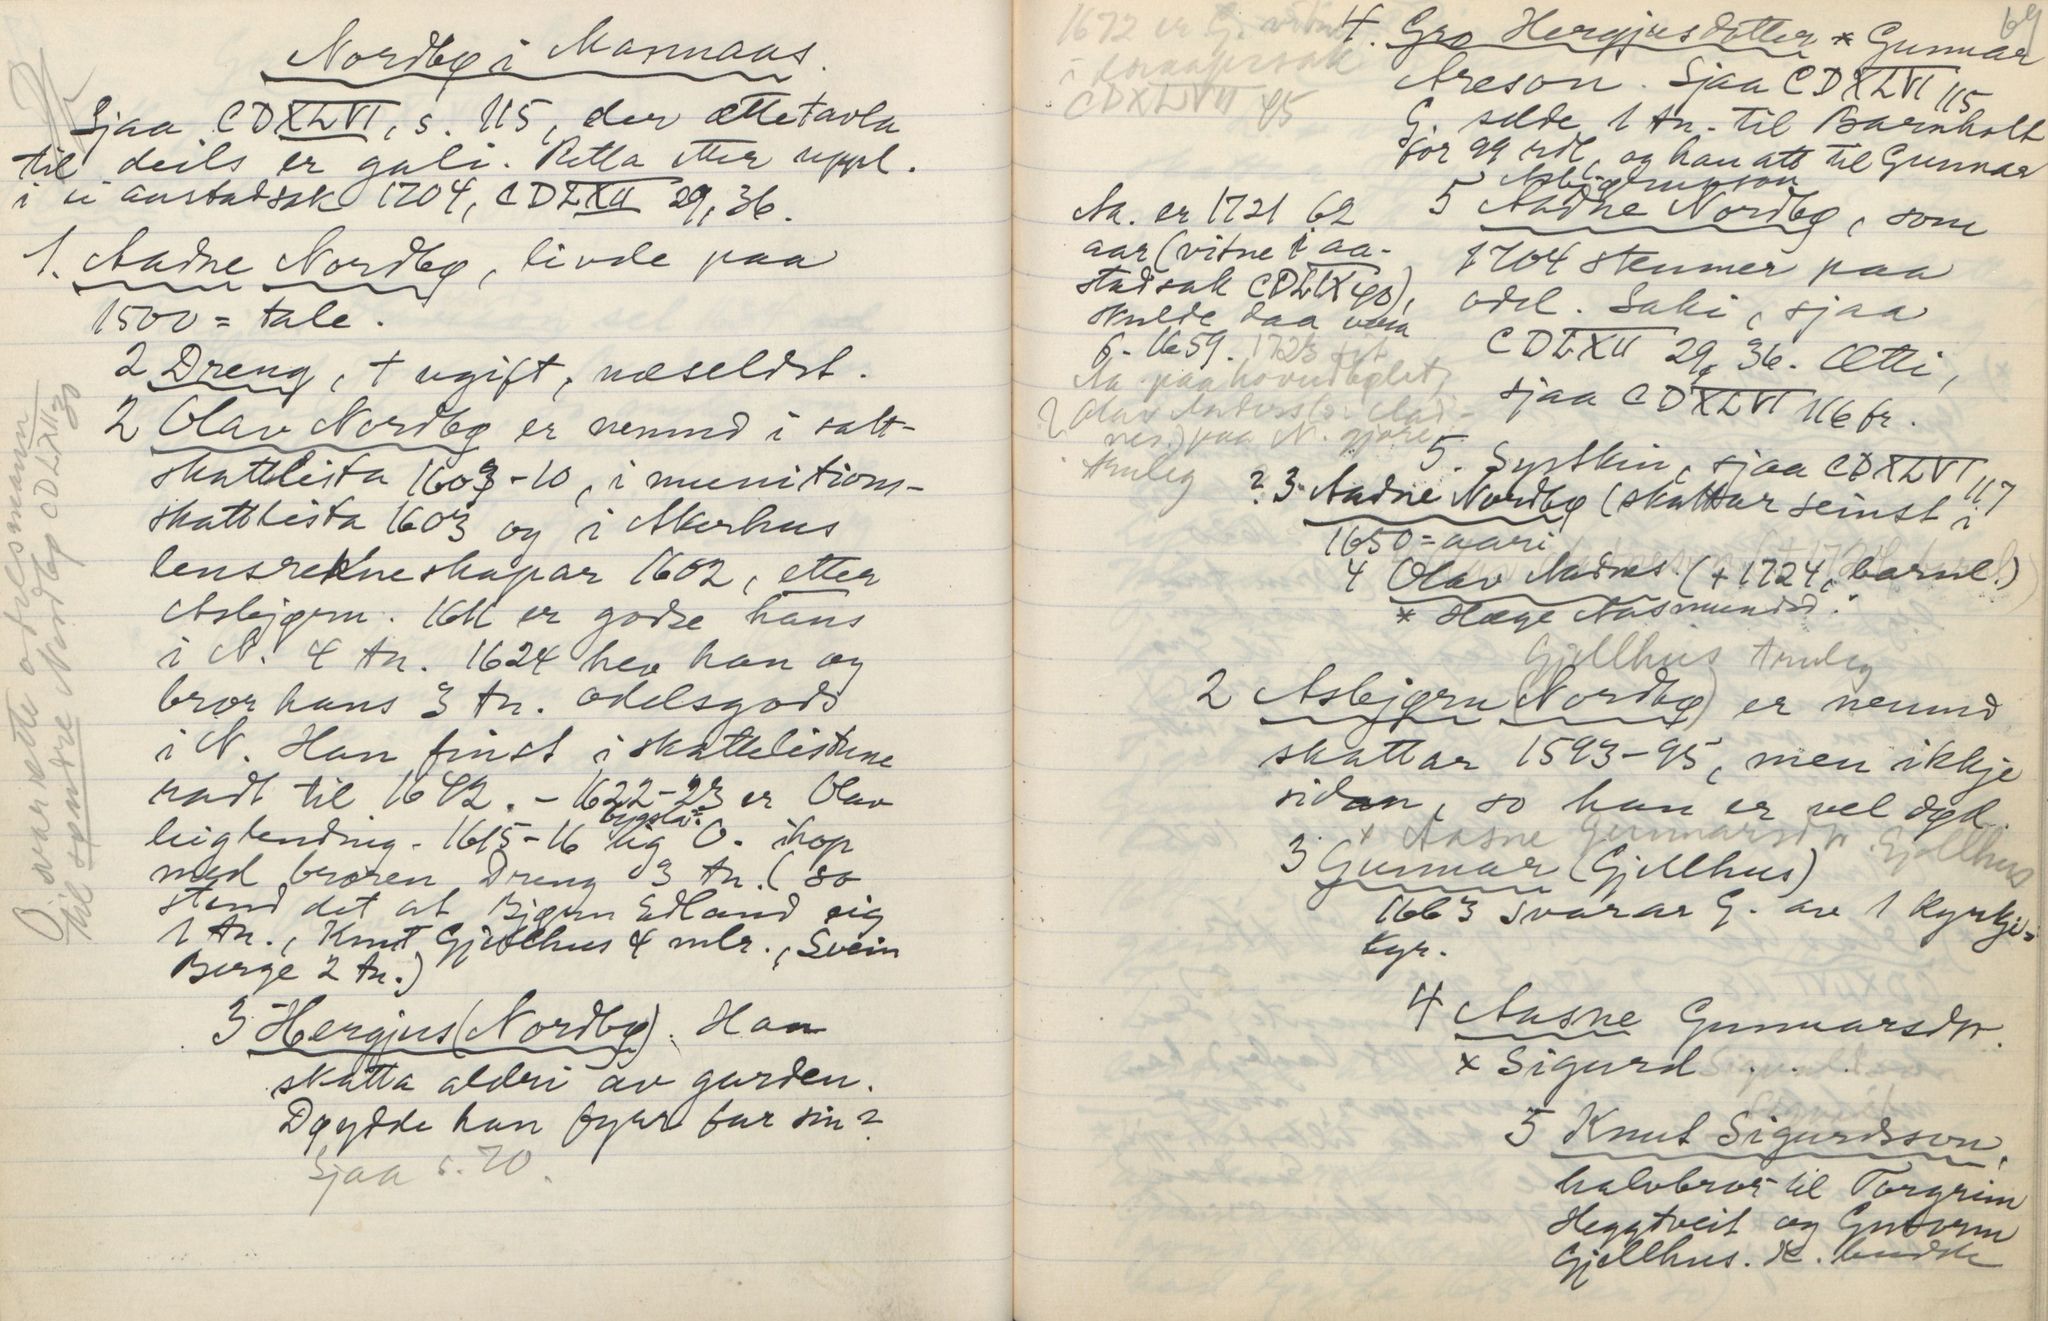 Nordbø i Mannaas.
Sjaa CDXLVI, s. 115, der ættetavla
til deils er gali. Retta etter uppl.
i ei aastadsak 1704, CDLXII 29, 36.
1. Aadne Nordbø, livde paa
1500= tale.
2 Dreng, + ugift, næseldst.
2 Olav Nordbø er nemnd i salt-
skattlista 1603-10, i munitions-
skattlista 1603 og i Akerhus
lensrekneskapar 1602, etter
Asbjørn. 1611 er godse hans
i N. 4 tn. 1624 hev han og
bror hans 3 tn. odelsgods
i N. Han finst i skattelistune
radt til 1642. - 1622-23 er Olav
leiglending. 1615-16 bygsla lig O. ihop
med broren Dreng 3 tn. (so
stend det at Bjørn Edland eig
1 tn., Knut Gjellhus 4 mlr., Svein
Berge 2 tn.)
3 Hergjus (Nordbø). Han
skatta aldri av garden.
Døydde han fyrr far sin?
Sjaa s. 70.
O. svar rette odelsmann
til søndre Nordbø CDLXII 30
69
1672 er G. vitne
i
CDXLVII 45
4. Gro Hergjusdotter * Gunnar
Areson. Sjaa CDXLVI 115
G. selde 1 tn. til Barnholt
for 99 rdl, og han att til Gunnar
Asbjørnson
5 Aadne Nordbø, som
1704 stemner paa
odel. Saki, sjaa
CDLXII 29, 36. Ætti,
sjaa CDXLVI 116 fr.
Aa. er 1721 62
aar (vitne i aa-
stadsak CDLIX 40),
skulde daa vera
f. 1659. 1723
Aa paa hovudbølet,
? Olav Anders (o: Aad-
nes.) paa N. gjore
truleg
5. Syskin, sjaa CDXLVI 117
? 3 Aadne Nordbø (skattar seinst i
1650=aari
4 Olav Aadnes. (+1724, barnl.)
* Hæge Aasmundsd.
Gjellhus truleg
2 Asbjørn (Nordbø) er nemnd
skattar 1593-95, men ikkje
sidan, so han er vel død.
x Aasne Gunnarsdtr Gjellhus
3 Gunnar (Gjellhus)
1663 svarar G. av 1 kyrkje=
kyr.
4 Aasne Gunnarsdtr.
x Sigurd . . . .
5 Knut Sigurdsson,
halvbror til Torgrim
Heggtveit og Guttorm
Gjellhus. K. budde